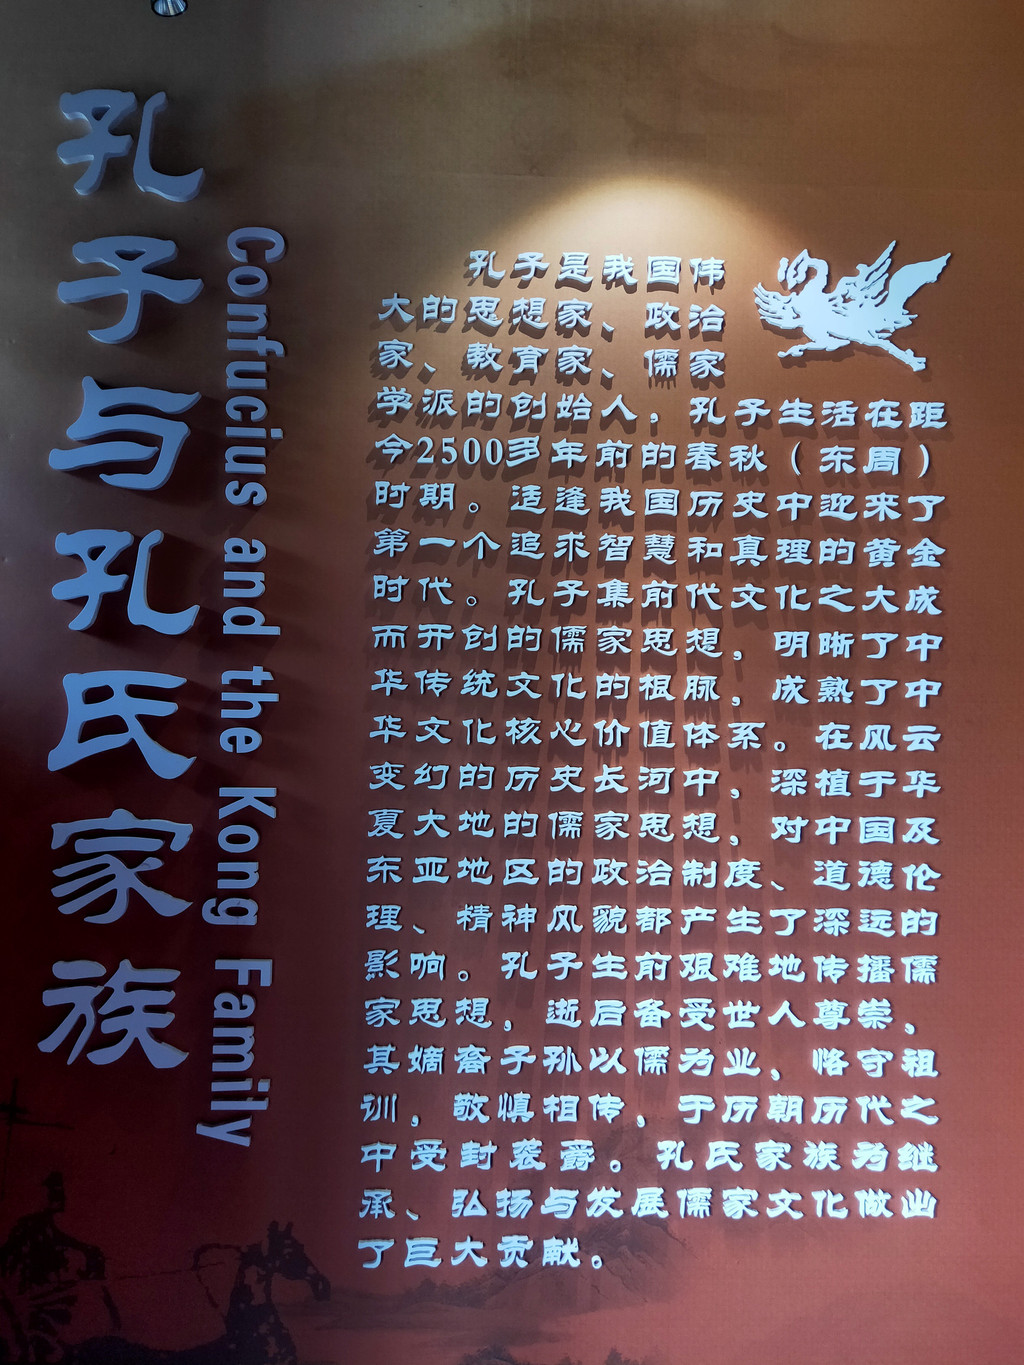 孔子与孔氏家族
Confucius and the Kong Family
孔子是我国伟
大的思想家、政治
家、教育家、儒家
学派的创始人，孔子生活在距
今2500多年前的春秋（东周）
时期。适逢我国历史中迎来了
第一个追求智慧和真理的黄金
时代。孔子集前代文化之大成
而开创的儒家思想，明晰了中
华传统文化的根脉，成熟了中
华文化核心价值体系。在风云
变幻的历史长河中，深植于华
夏大地的儒家思想，对中国及
东亚地区的政治制度、道德伦
理、精神风貌都产生了深远的
影响。孔子生前艰难地传播儒
家思想，逝后备受世人尊崇，
其嫡裔子孙以儒为业，恪守祖
训，敬慎相传，于历朝历代之
中受封袭爵。孔氏家族为继
承、弘扬与发展儒家文化做出
了巨大贡献。